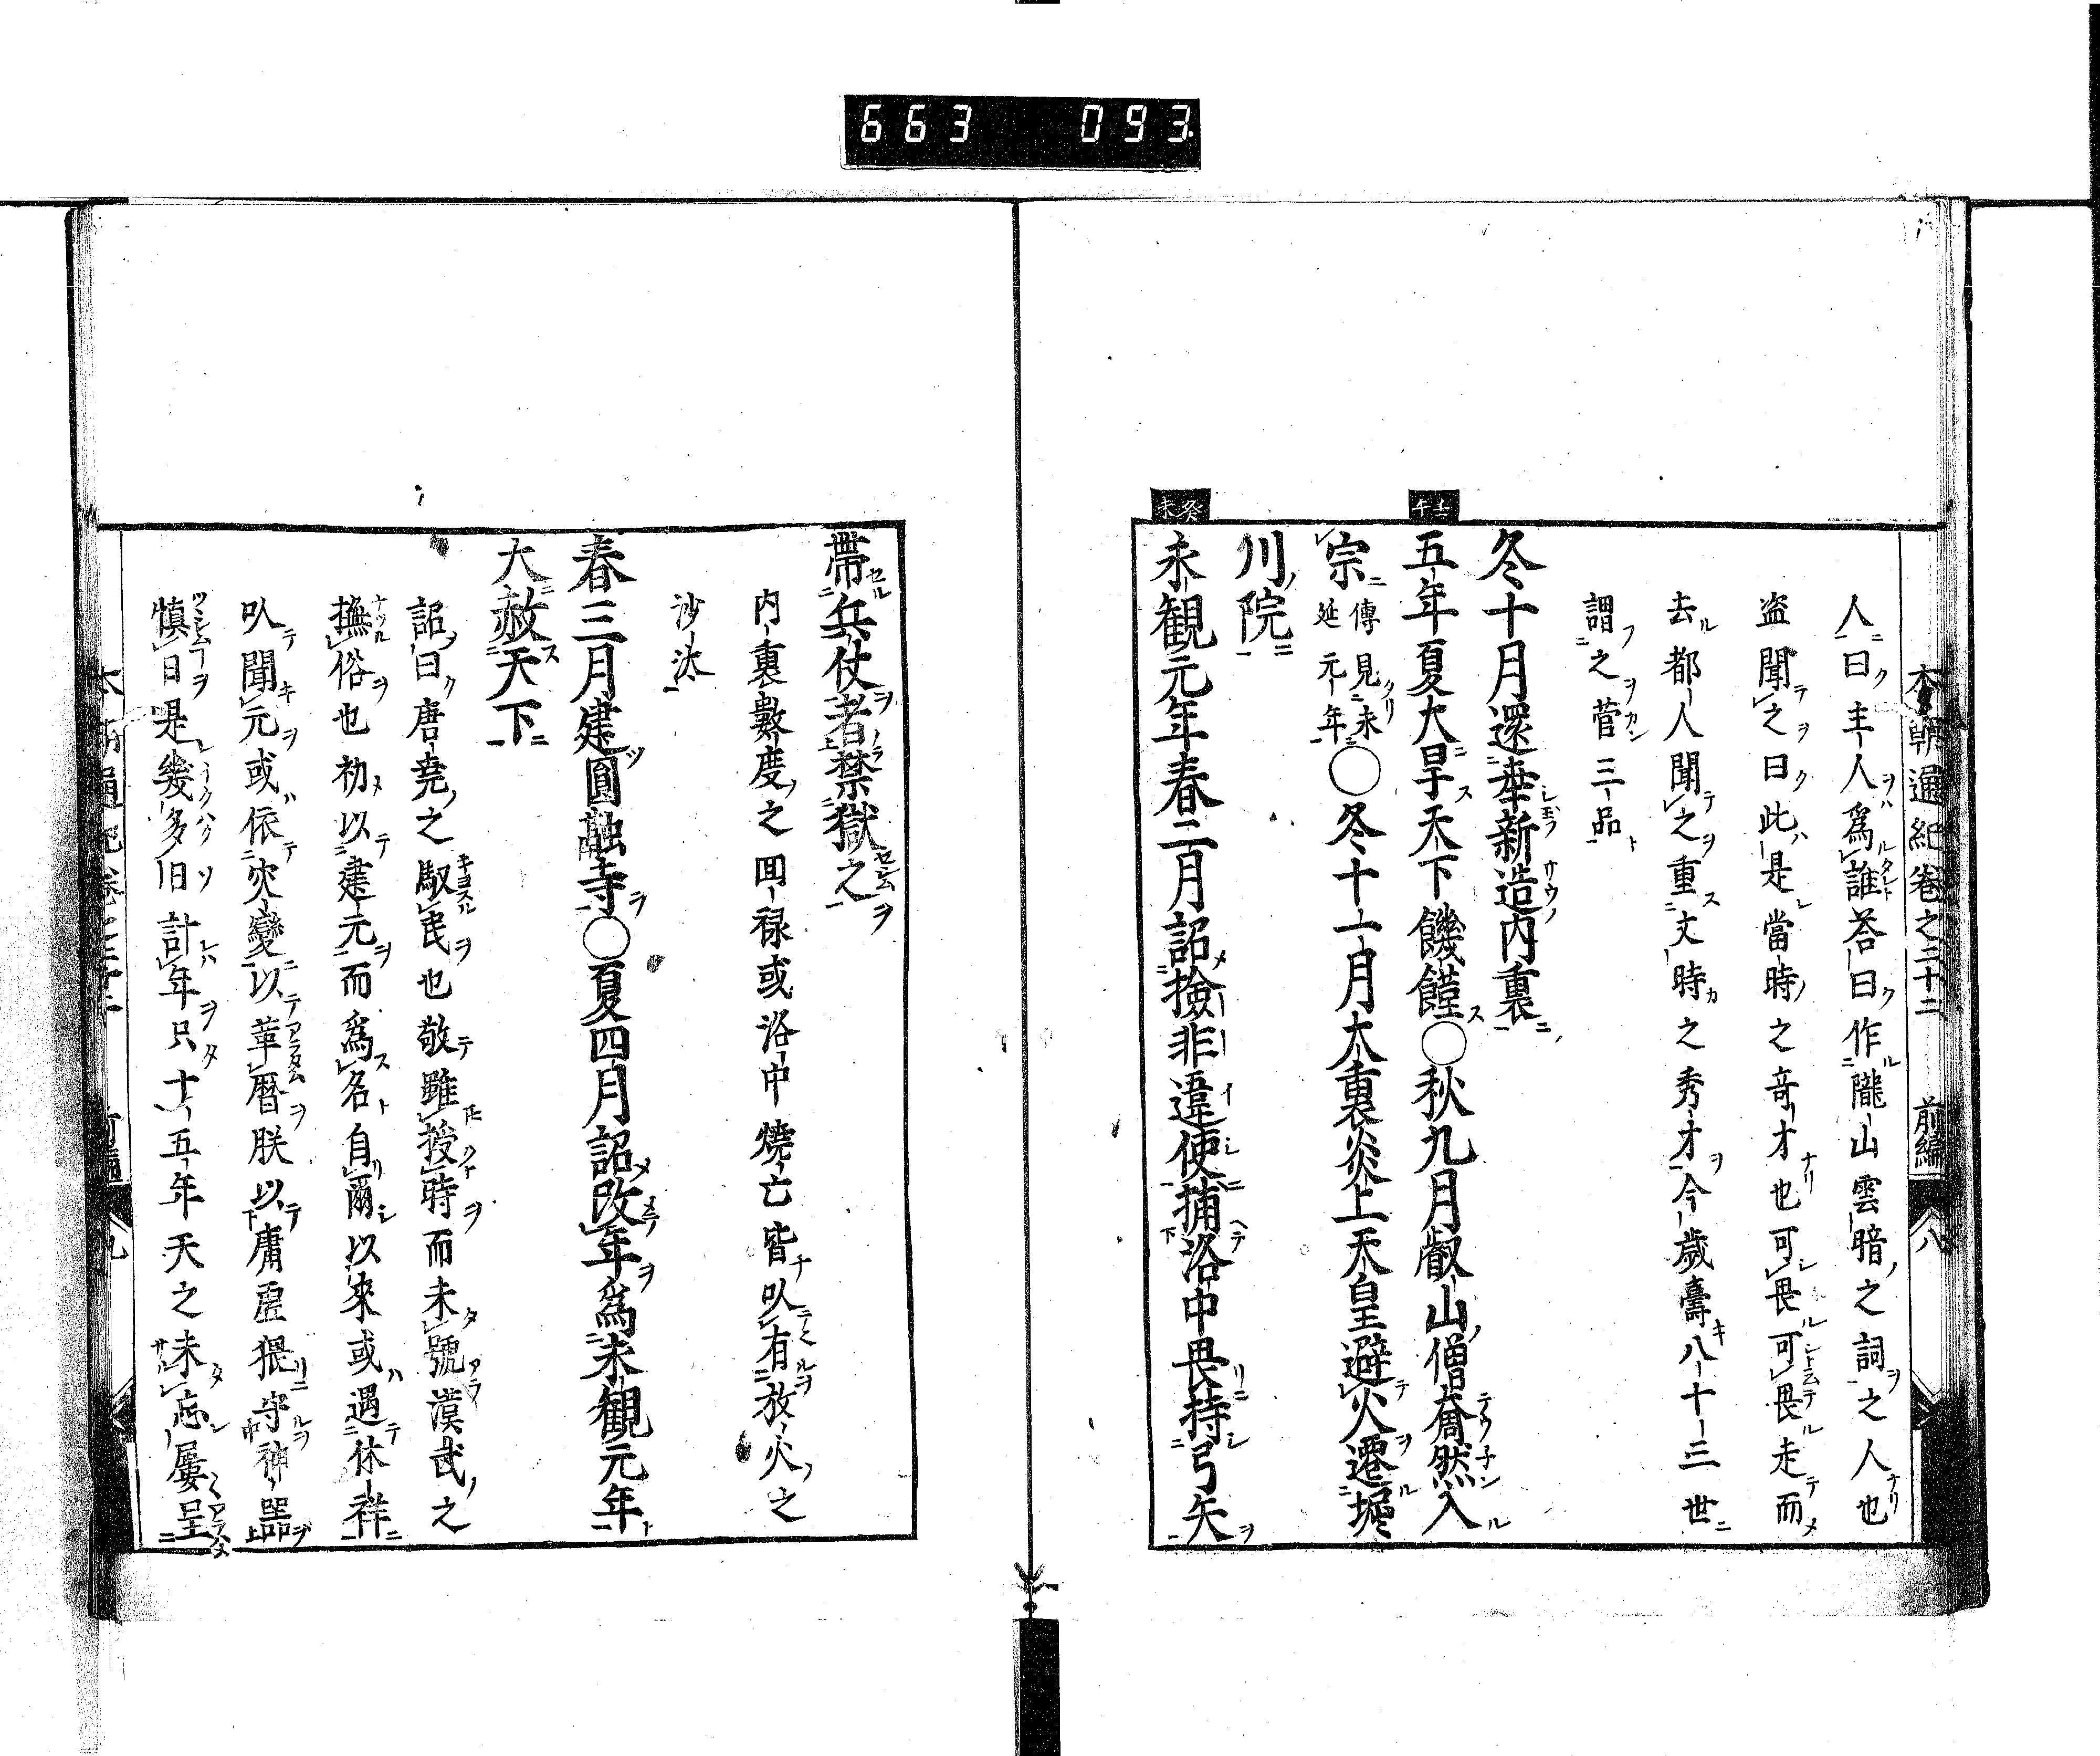 663 093
本朝通紀卷之二十二 前編 八
人曰主人爲誰荅曰作隴山雲暗之詞之人也
盗聞之曰此是當時之奇才也可畏可畏走而
去都人聞之重文時之秀才今歳壽八十三世
謂之菅三品
冬十月還幸新造内裏
壬午
五年夏大旱天下饑饉○秋九月叡山僧奝然入
宗傳見未延元年○冬十一月大裏炎上天皇避火遷堀
川院
癸未
永観元年春二月詔撿非違使捕洛中畏持弓矢
帶兵仗者禁獄之
内裏數度之囬禄或洛中燒亡皆以有放火之
沙汰
春三月建圓融寺○夏四月詔改年爲永觀元年
大赦天下
詔曰唐堯之馭民也敬雖授時而未號漢武之
撫俗也初以建元而爲名自爾以來或遇休祥
以開元或依灾變以革暦朕以庸虚猥守神器
慎日是幾多旧計年只十五年天之未忘屢呈